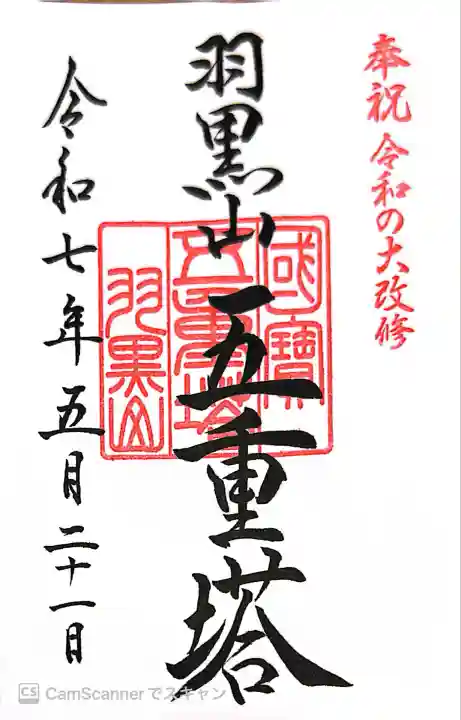 奉祝 令和の大改修
羽黒山 五重塔
國寶
五重塔
羽黒山
令和七年五月二十一日
CS CamScanner でスキャン